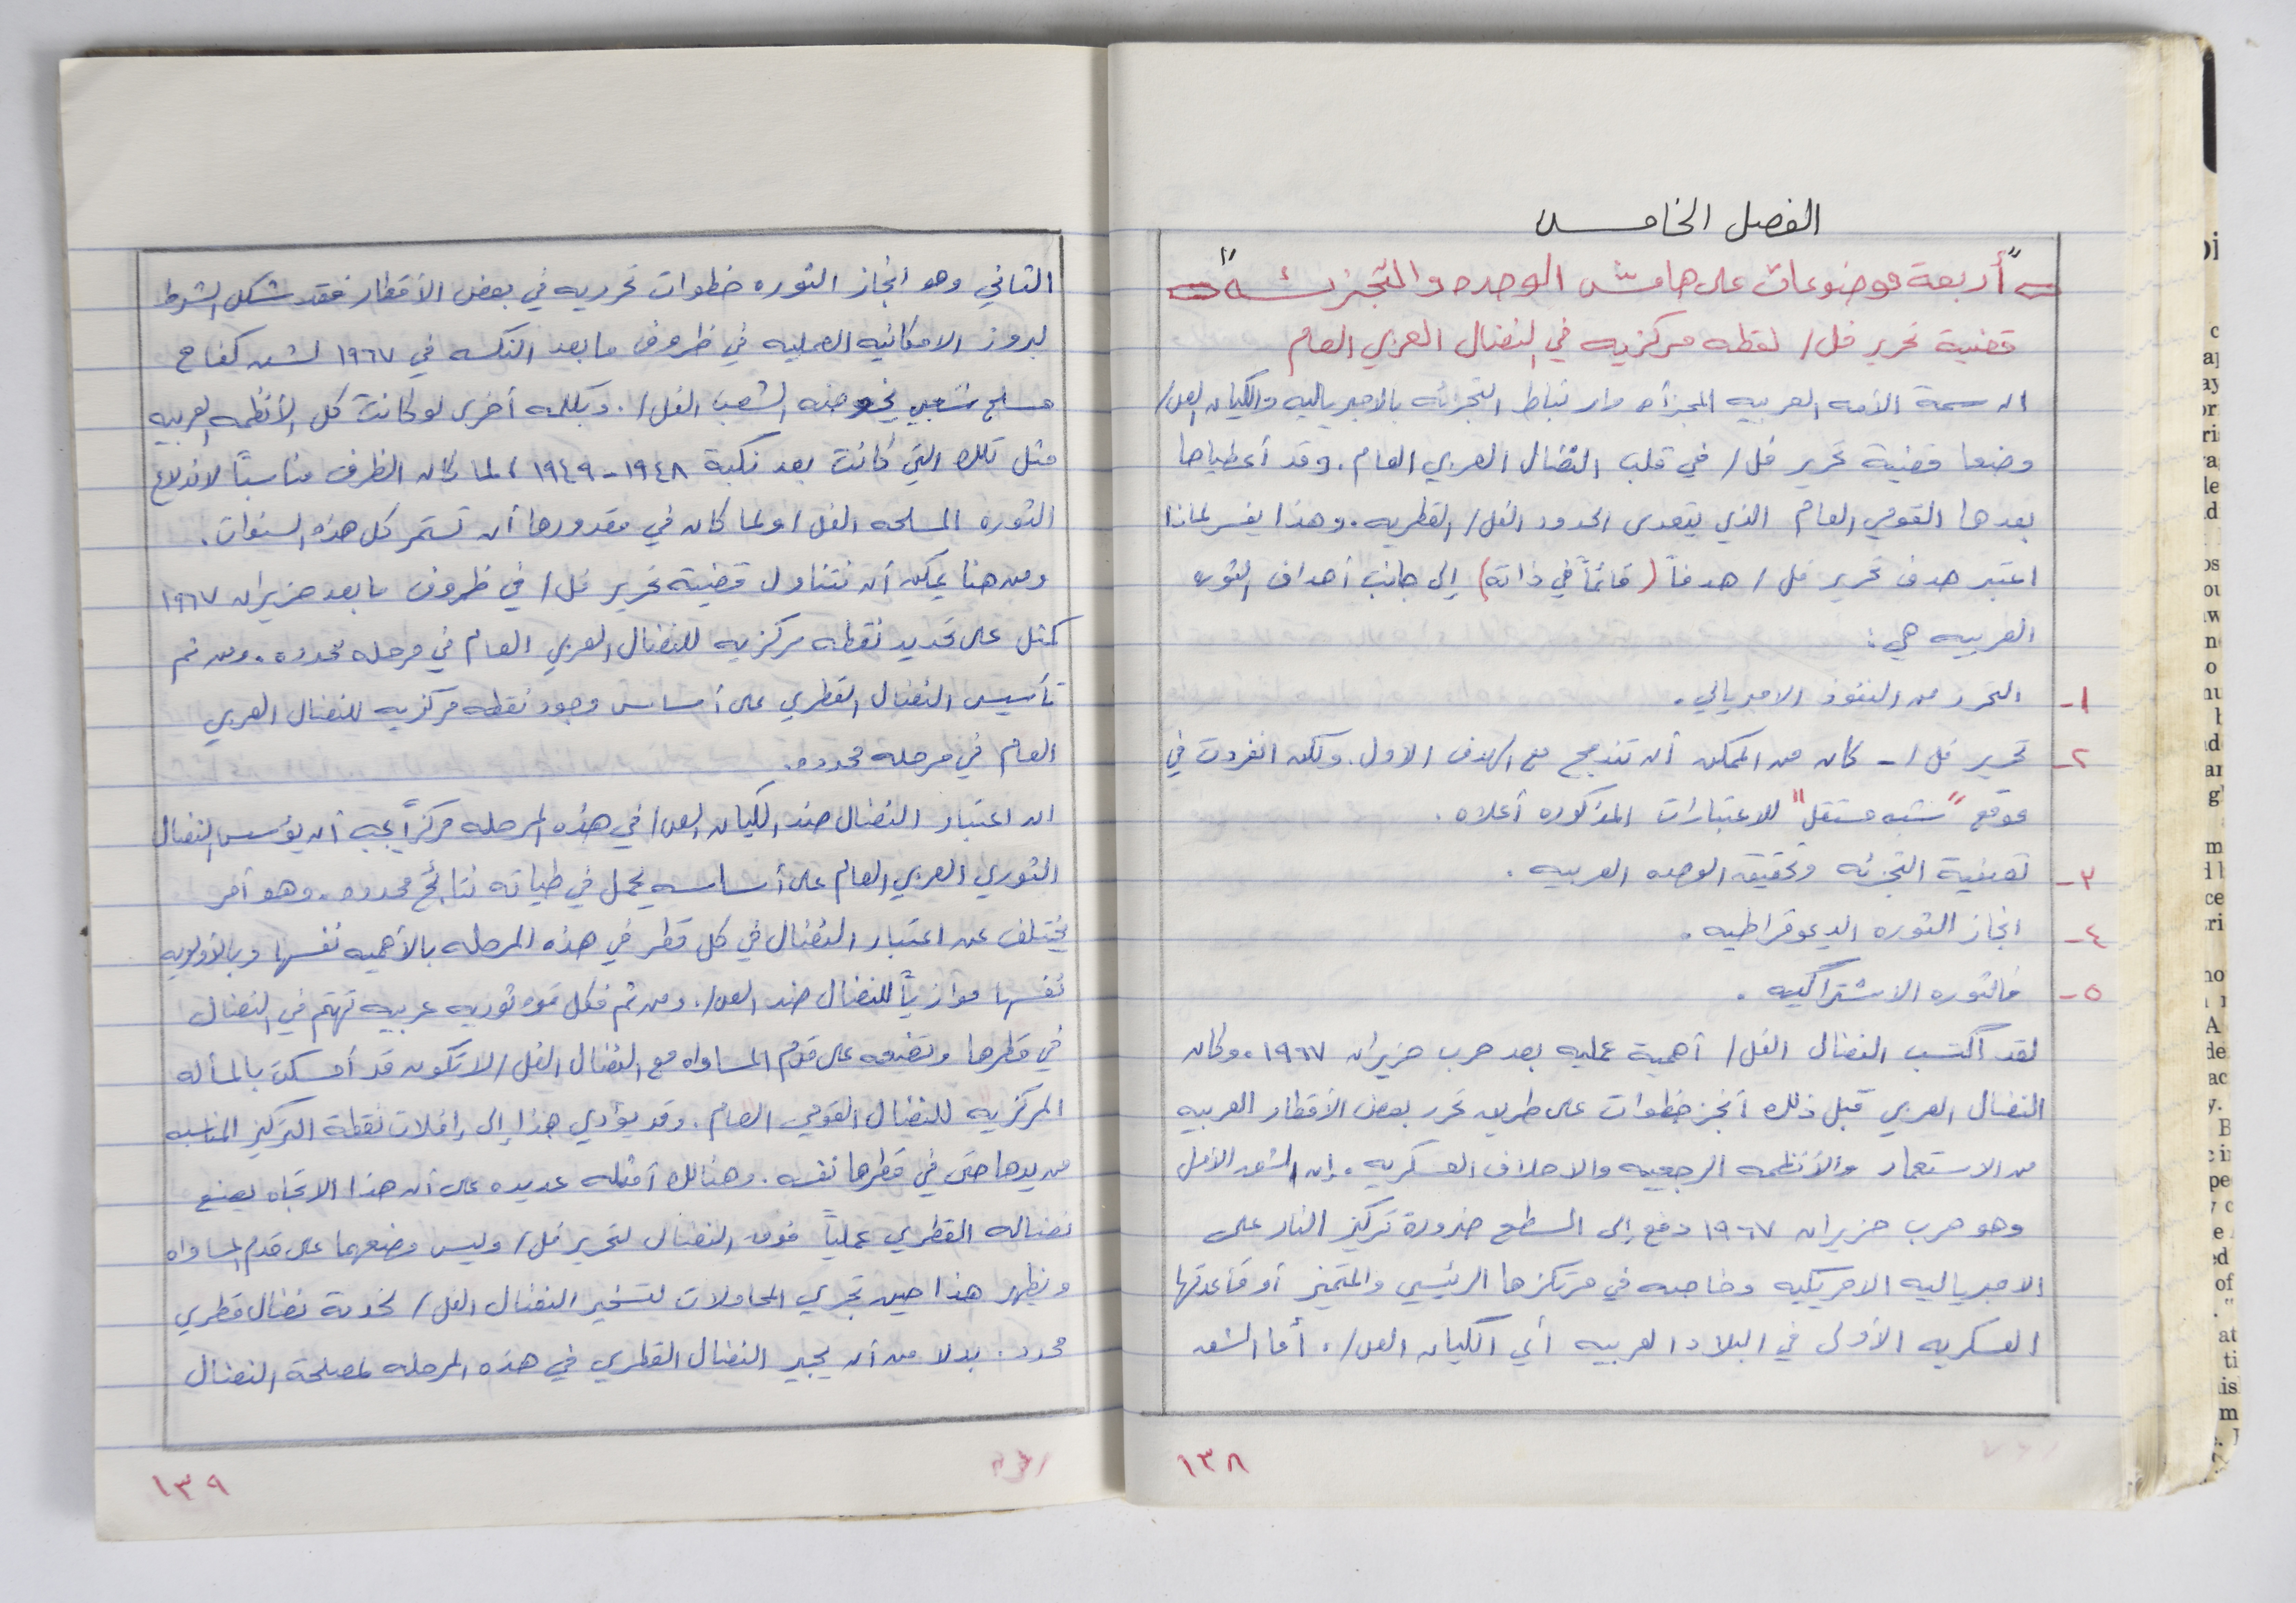 الفصل الخامس
"أربعة موضوعات على هامش الوحده والتجزئه"
قضية تحرير فل/ نقطه مركزيه في النضال العربي العام
ان سمة الأمه العربيه المجزأه وارتباط التجزئه بالامبرياليه والكيان الص/
وضعا قضية تحرير فل/ في قلب النضال العربي العام. وقد أعطياها
بعدها القومي العام الذي يتعدى الحدود الفل/ القطريه. وهذا يفسر لماذا
اعتبر هدف تحرير فل/ هدفاً (قائماً في ذاته) إلى جانب أهداف الثوره
العربيه هي:
١- التحرر من النفوذ الامبريالي.
٢- تحرير فل/ - كان من الممكن أن تندمج مع الهدف الاول. ولكن انفردت في
موقع "شبه مستقل" للاعتبارات المذكوره أعلاه.
٣- تصفية التجزئه وتحقيق الوحده العربيه.
٤- انجاز الثوره الديموقراطيه.
٥- فالثوره الاشتراكيه.
لقد اكتسب النضال الفل/ أهمية عمليه بعد حرب حزيران ١٩٦٧. وكان
النضال العربي قبل ذلك أنجز خطوات على طريق تحرر بعض الأقطار العربيه
من الاستعمار والأنظمه الرجعيه والاحلاف العسكريه. إن الشق الأول
وهو حرب حزيران ١٩٦٧ دفع إلى السطح ضرورة تركيز النار على
الامبرياليه الامريكيه وخاصه في مرتكزها الرئيسي والمتميز أو قاعدتها
العسكريه الأولى في البلاد العربيه أي الكيان الص/. أما الشق
١٣٨
الثاني وهو انجاز الثوره خطوات تحرريه في بعض الأقطار فقد شكل الشرط
لبروز الامكانيه العمليه في ظروف ما بعد النكسه في ١٩٦٧ لشن كفاح
مسلح شعبي يخوضه الشعب الفل/. وبكلمه أخرى لو كانت كل الأنظمه العربيه
مثل تلك التي كانت بعد نكبة ١٩٤٨-١٩٤٩، لما كان الظرف مناسباً لاندلاع
الثوره المسلحه الفل/ ولما كان في مقدورها أن تستمر كل هذه السنوات.
ومن هنا يمكن أن نتناول قضية تحرير فل/ في ظروف ما بعد حزيران ١٩٦٧
كمثل على تحديد نقطه مركزيه للنضال العربي العام في مرحله محدده. ومن ثم
تأسيس النضال القطري على أساس وجود نقطه مركزيه للنضال العربي
العام في مرحله محدده.
ان اعتبار النضال ضد الكيان الص/ في هذه المرحله مركزاً يجب أن يؤسس النضال
الثوري العربي العام على أساسه يحمل في طياته نتائج محدده. وهو أمر
يختلف عن اعتبار النضال في كل قطر في هذه المرحله بالأهميه نفسها وبالأولويه
نفسها موازياً للنضال ضد الص/. ومن ثم فكل قوه ثوريه عربيه تهتم في النضال
في قطرها وتضعه على قدم المساواه مع النضال الفل/ لا تكون قد أمسكت بالمسأله
المركزيه للنضال القومي العام. وقد يؤدي هذا إلى إفلات نقطة التركيز المناسبه
من يدها حتى في قطرها نفسه. وهنالك أمثله عديده على أن هذا الاتجاه يضع
نضاله القطري عملياً فوق النضال لتحرير فل/ وليس وضعهما على قدم المساواه
ويظهر هذا حين تجري المحاولات لتسخير النضال الفل/ لخدمة نضال قطري
محدد. بدلا من أن يجير النضال القطري في هذه المرحله لمصلحة النضال
١٣٩